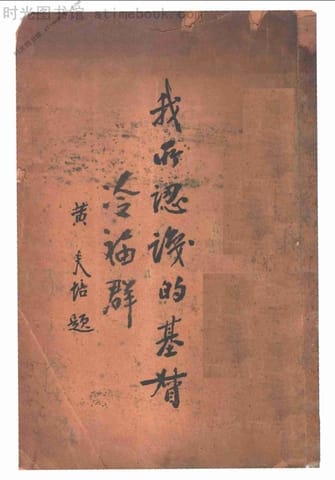 时光图书馆 - atimebook.com
我所認識的基督
令福群
黄炎培題